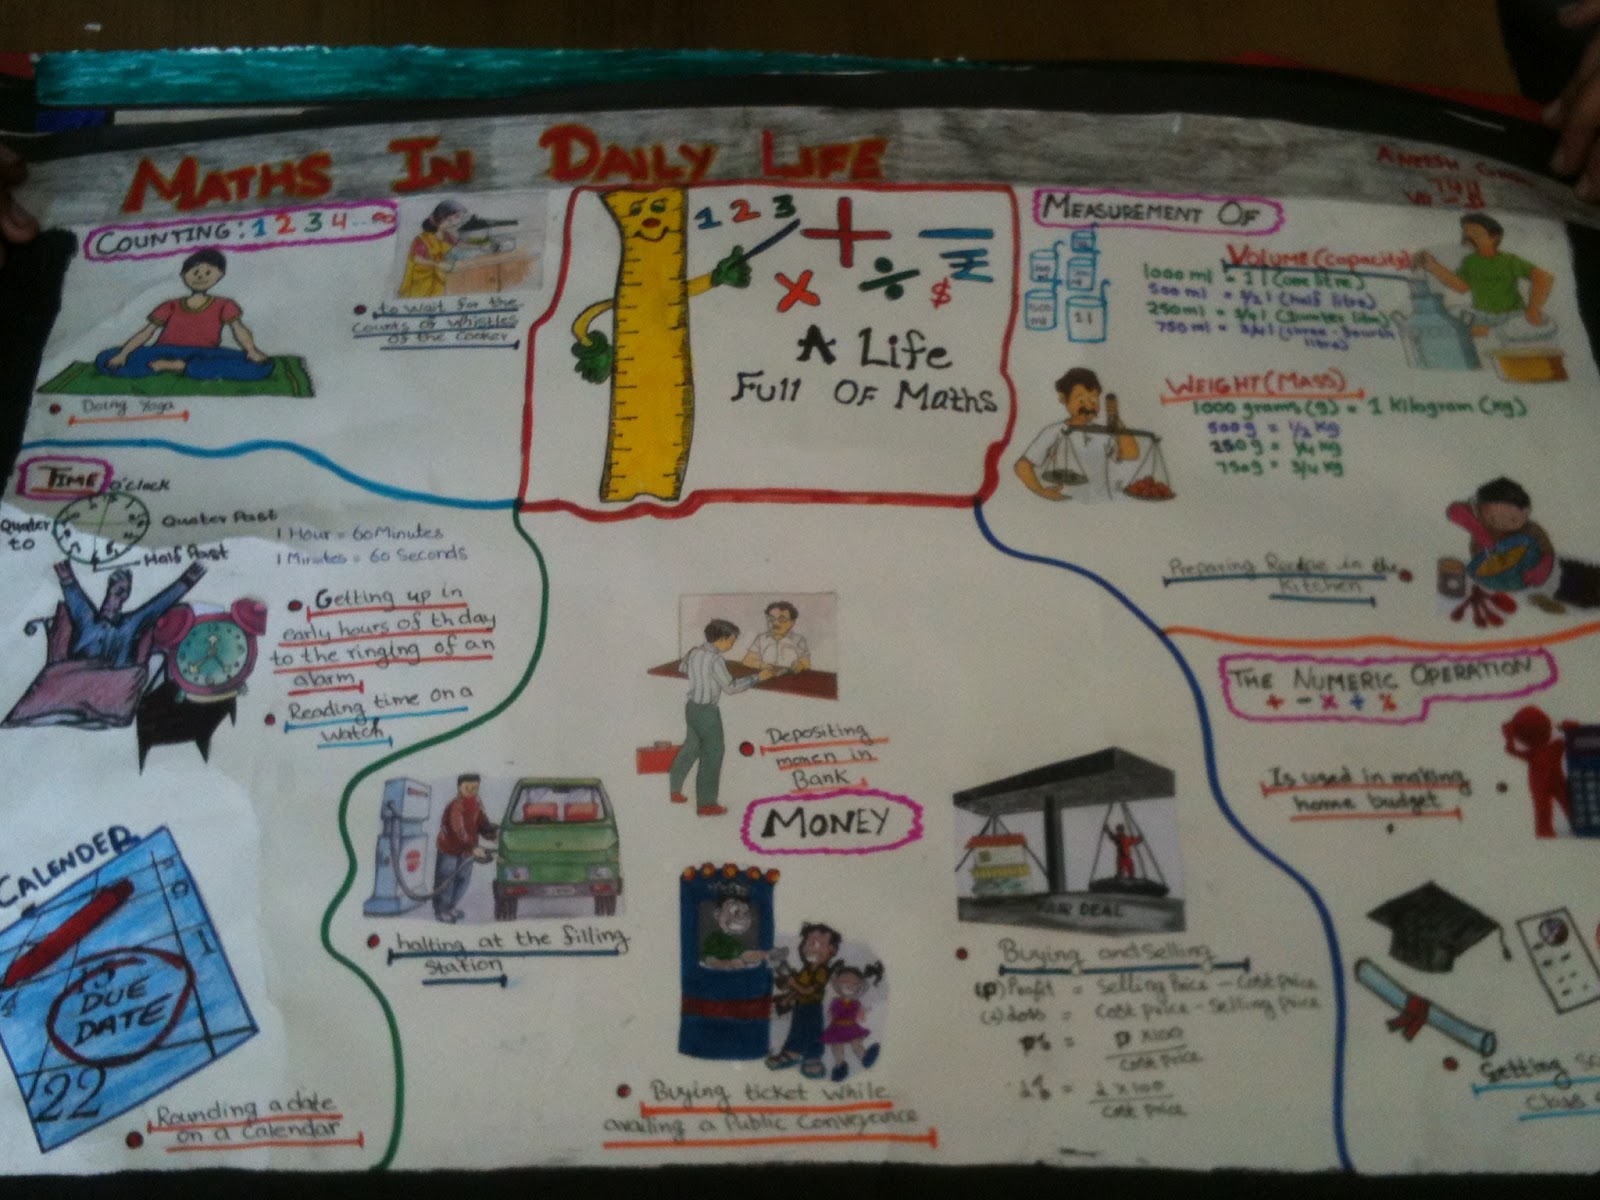 MATHS IN DAILY LIFE
COUNTING: 1 2 3 4 ...∞
to wait for the
counts of whistles
of the cooker
Doing Yoga
1 2 3 + = × ÷ $
A Life
Full OF Maths
MEASUREMENT OF
VOLUME (capacity)
1000 ml = 1 l (one litre)
500 ml = 1/2 l (half litre)
250 ml = 1/4 l (Quarter litre)
750 ml = 3/4 l (three-fourth
litre)
500 ml
1 l
WEIGHT (MASS)
1000 grams (g) = 1 kilogram (kg)
500 g = 1/2 kg
250 g = 1/4 kg
750g = 3/4 kg
Preparing Recipe in the
Kitchen
TIME
o'clock
Quater Past
Quater
to
Half Past
1 Hour = 60 Minutes
1 Minutes = 60 Seconds
Getting up in
early hours of th day
to the ringing of an
alarm
Reading time on a
watch
CALENDER
15
DUE
DATE
22
Rounding a date
on a Calendar
Depositing
money in
Bank
MONEY
halting at the filling
station
Buying ticket while
availing a Public Conveyance
FAIR DEAL
Buying and Selling
(P) Profit = Selling Price - Cost price
(L) loss = Cost price - Selling price
P% = P × 100
cost price
L% = L × 100
cost price
THE NUMERIC OPERATION
+ - × ÷ %
Is used in making
home budget
Setting
Class